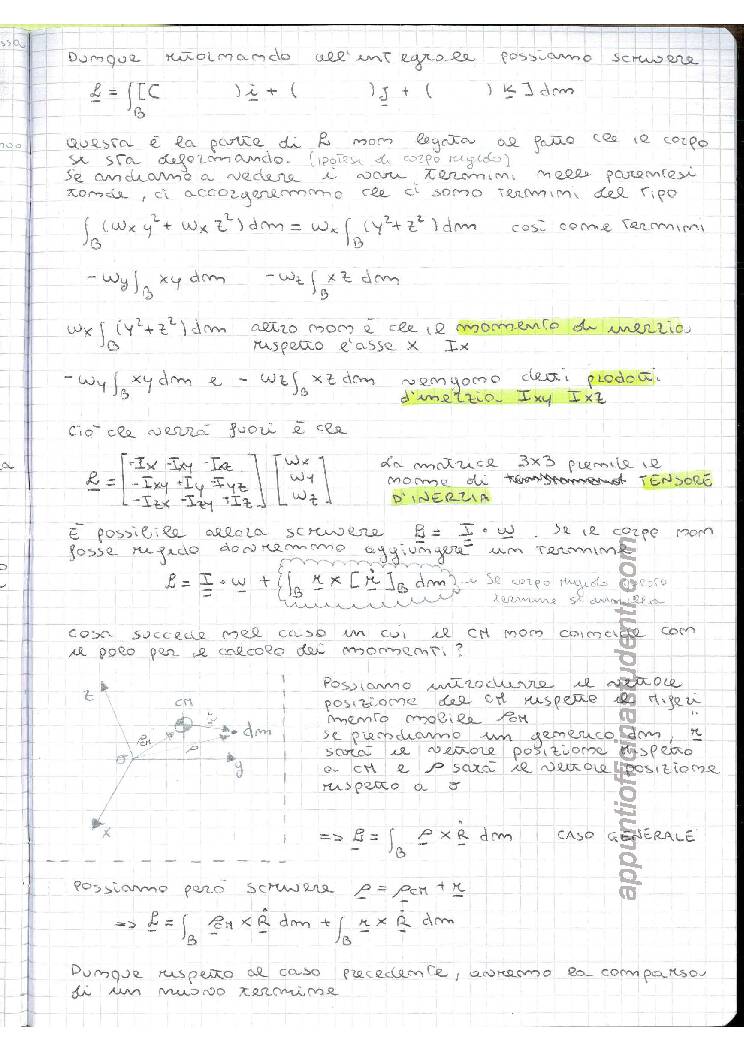 Dunque ritornando all'integrale possiamo scrivere
L = ∫_B [( ) i + ( ) J + ( ) K ] dm
Questa è la parte di L non legata al fatto che il corpo
si sta deformando. (ipotesi di corpo rigido)
Se andiamo a vedere i vari termini nelle parentesi
tonde, ci accorgeremmo che ci sono termini del tipo
∫_B (ωx y² + ωx z²) dm = ωx ∫_B (y² + z²) dm così come termini
-ωy ∫_B xy dm -ωz ∫_B xz dm
ωx ∫_B (y² + z²) dm altro non è che il momento di inerzia
rispetto l'asse x Ix
-ωy ∫_B xy dm e - ωz ∫_B xz dm vengono detti prodotti
d'inerzia Ixy Ixz
Ciò che verrà fuori è che
L = [-Ix -Ixy -Ixz] [ωx] La matrice 3x3 prende il
[-Ixy +Iy -Iyz] [ωy] nome di TENSORE
[-Izx -Izy +Iz] [ωz] D'INERZIA
È possibile allora scrivere L = I · ω. Se il corpo non
fosse rigido dovremmo aggiungere un termine
L = I · ω + {∫_B r × [ṙ]_B dm} → Se corpo rigido questo
termine si annulla
Cosa succede nel caso in cui il CM non coincide con
il polo per il calcolo dei momenti?
z
CM
r
dm
ρCM
ρ
O
y
x
Possiamo introdurre il vettore
posizione del CM rispetto il riferi
mento mobile ρCM
se prendiamo un generico dm, r
sarà il vettore posizione rispetto
a CM e ρ sarà il vettore posizione
rispetto a O
=> L = ∫_B ρ × Ṙ dm CASO GENERALE
Possiamo però scrivere ρ = ρCM + r
=> L = ∫_B ρCM × Ṙ dm + ∫_B r × Ṙ dm
Dunque rispetto al caso precedente, avremo la comparsa
di un nuovo termine
appuntiofficinastudenti.com